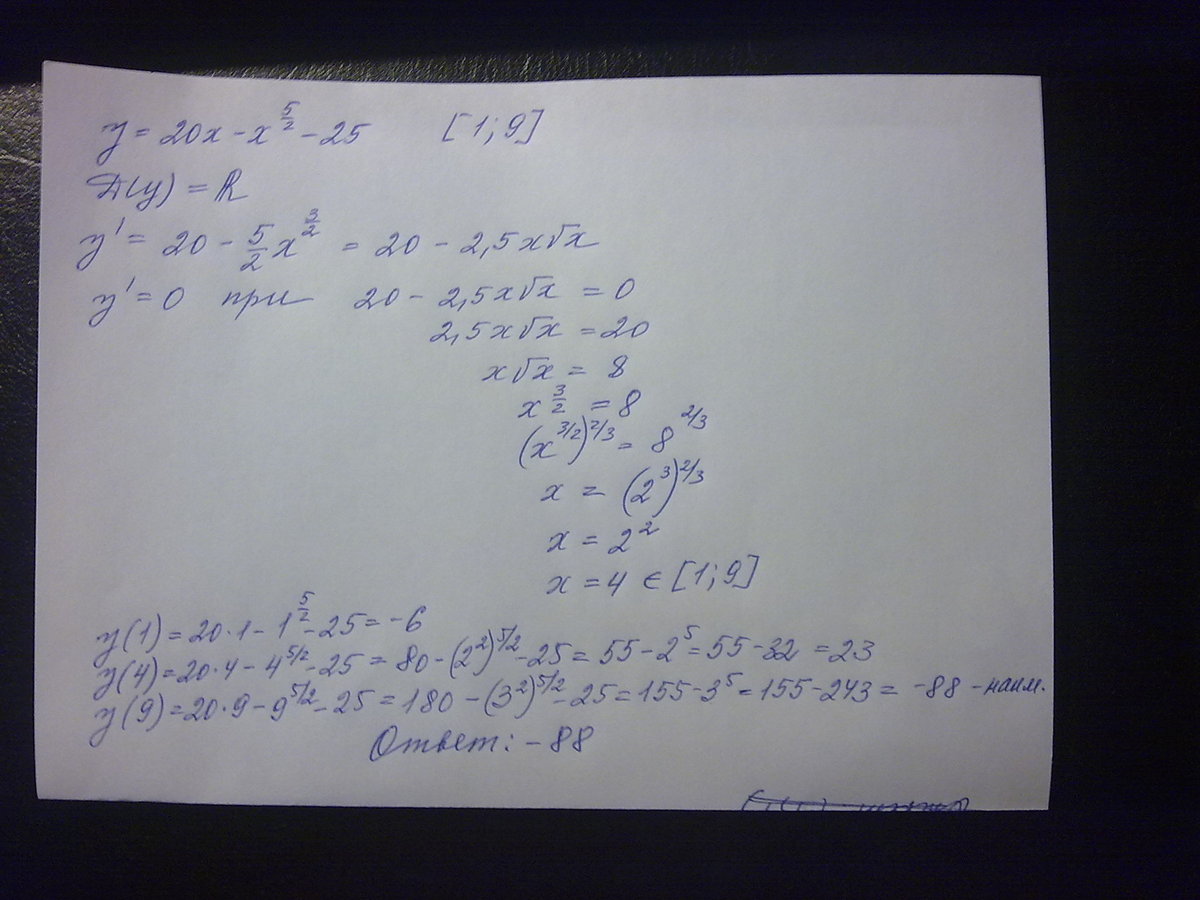 y = 20x - x^{5/2} - 25 [1; 9]
D(y) = R
y' = 20 - 5/2 x^{3/2} = 20 - 2,5x√x
y' = 0 при 20 - 2,5x√x = 0
2,5x√x = 20
x√x = 8
x^{3/2} = 8
(x^{3/2})^{2/3} = 8^{2/3}
x = (2^3)^{2/3}
x = 2^2
x = 4 ∈ [1; 9]
y(1) = 20·1 - 1^{5/2} - 25 = -6
y(4) = 20·4 - 4^{5/2} - 25 = 80 - (2^2)^{5/2} - 25 = 55 - 2^5 = 55 - 32 = 23
y(9) = 20·9 - 9^{5/2} - 25 = 180 - (3^2)^{5/2} - 25 = 155 - 3^5 = 155 - 243 = -88 - наим.
Ответ: -88